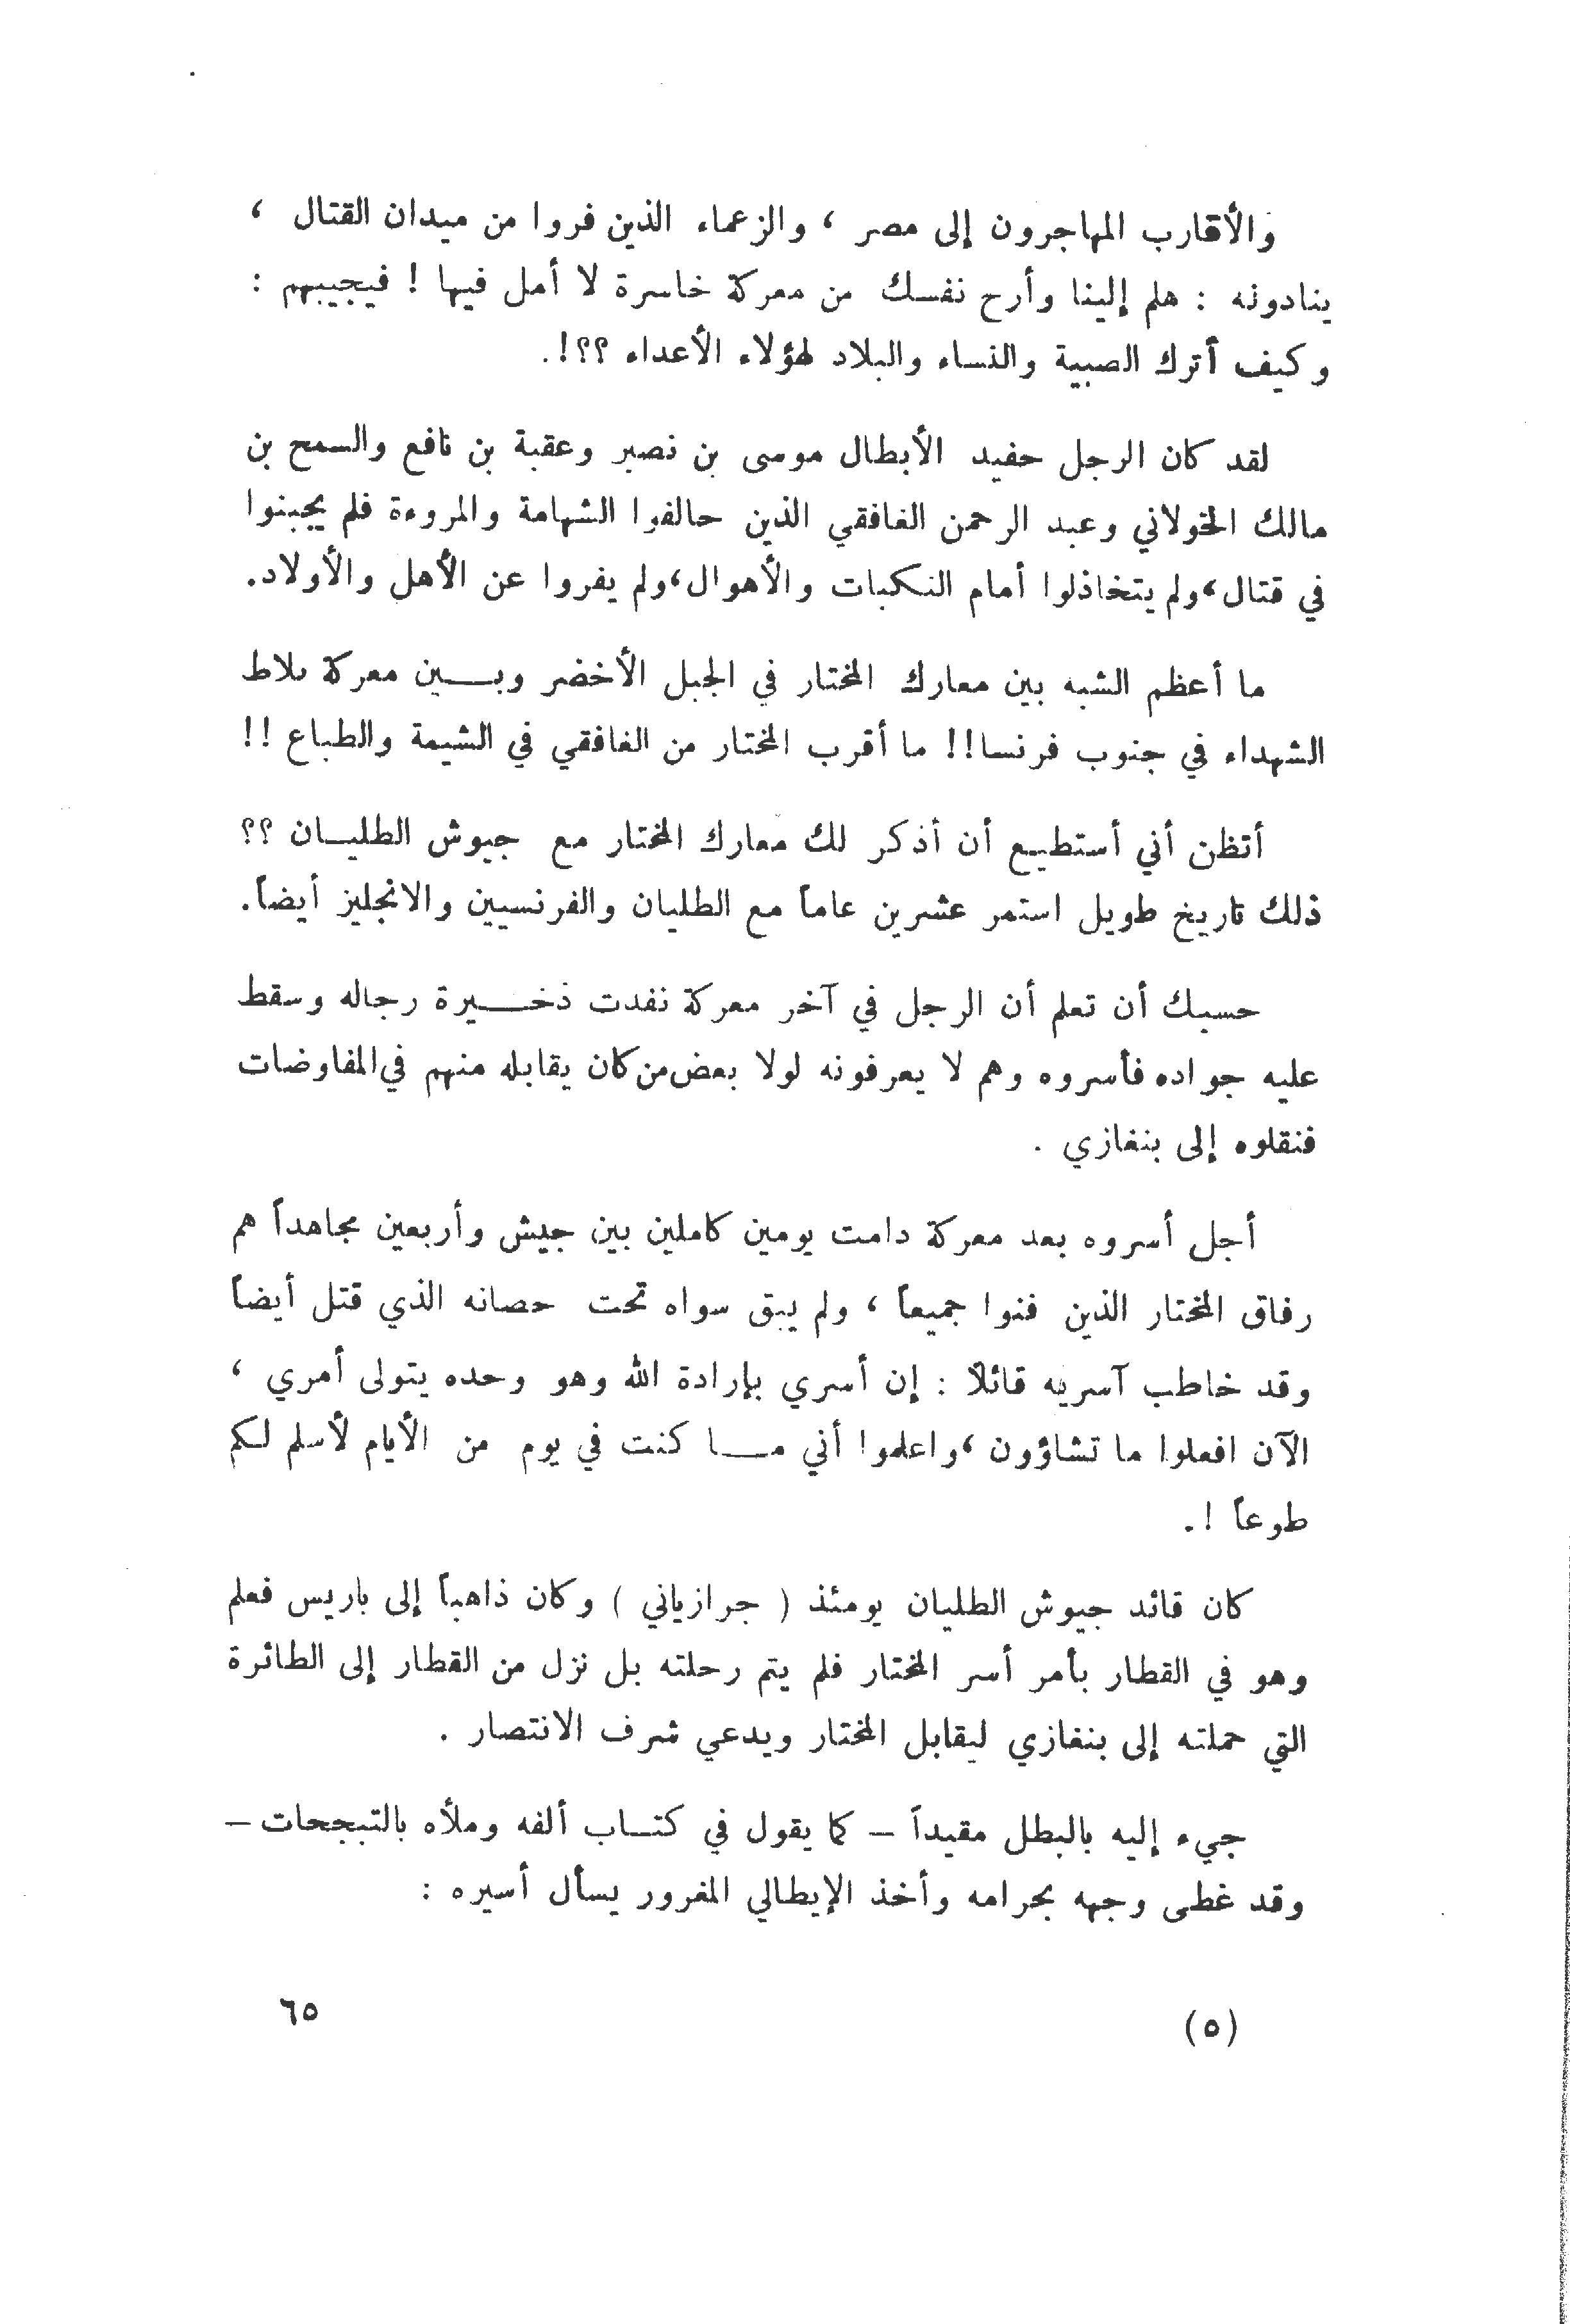 والأقارب المهاجرون إلى مصر ، والزعماء الذين فروا من ميدان القتال ،
ينادونه : هلم إلينا وأرح نفسك من معركة خاسرة لا أمل فيها ! فيجيبهم :
وكيف أترك الصبية والنساء والبلاد لهؤلاء الأعداء ؟؟!.
لقد كان الرجل حفيد الأبطال موسى بن نصير وعقبة بن نافع والسمح بن
مالك الخولاني وعبد الرحمن الغافقي الذين حالفوا الشهامة والمروءة فلم يجبنوا
في قتال،ولم يتخاذلوا أمام النكبات والأهوال،ولم يفروا عن الأهل والأولاد.
ما أعظم الشبه بين معارك المختار في الجبل الأخضر وبــين معركة بلاط
الشهداء في جنوب فرنسا!! ما أقرب المختار من الغافقي في الشيمة والطباع !!
أتظن أني أستطيـع أن أذكر لك معارك المختار مع جيوش الطليــان ؟؟
ذلك تاريخ طويل استمر عشرين عاماً مع الطليان والفرنسيين والانجليز أيضاً.
حسبك أن تعلم أن الرجل في آخر معركة نفدت ذخــيرة رجاله وسقط
عليه جواده فأسروه وهم لا يعرفونه لولا بعض من كان يقابله منهم في المفاوضات
فنقلوه إلى بنغازي .
أجل أسروه بعد معركة دامت يومين كاملين بين جيش وأربعين مجاهداً هم
رفاق المختار الذين فنوا جميعاً ، ولم يبق سواه تحت حصانه الذي قتل أيضاً
وقد خاطب آسريه قائلاً : إن أسري بإرادة الله وهو وحده يتولى أمري ،
الآن افعلوا ما تشاؤون ،واعلموا أني مــا كنت في يوم من الأيام لأسلم لكم
طوعاً !.
كان قائد جيوش الطليان يومئذ ( جرازياني ) وكان ذاهباً إلى باريس فعلم
وهو في القطار بأمر أسر المختار فلم يتم رحلته بل نزل من القطار إلى الطائرة
التي حملته إلى بنغازي ليقابل المختار ويدعي شرف الانتصار .
جيء إليه بالبطل مقيداً – كما يقول في كتــاب ألفه وملأه بالتبجحات –
وقد غطى وجهه بحرامه وأخذ الإيطالي المغرور يسأل أسيره :
(٥) ٦٥